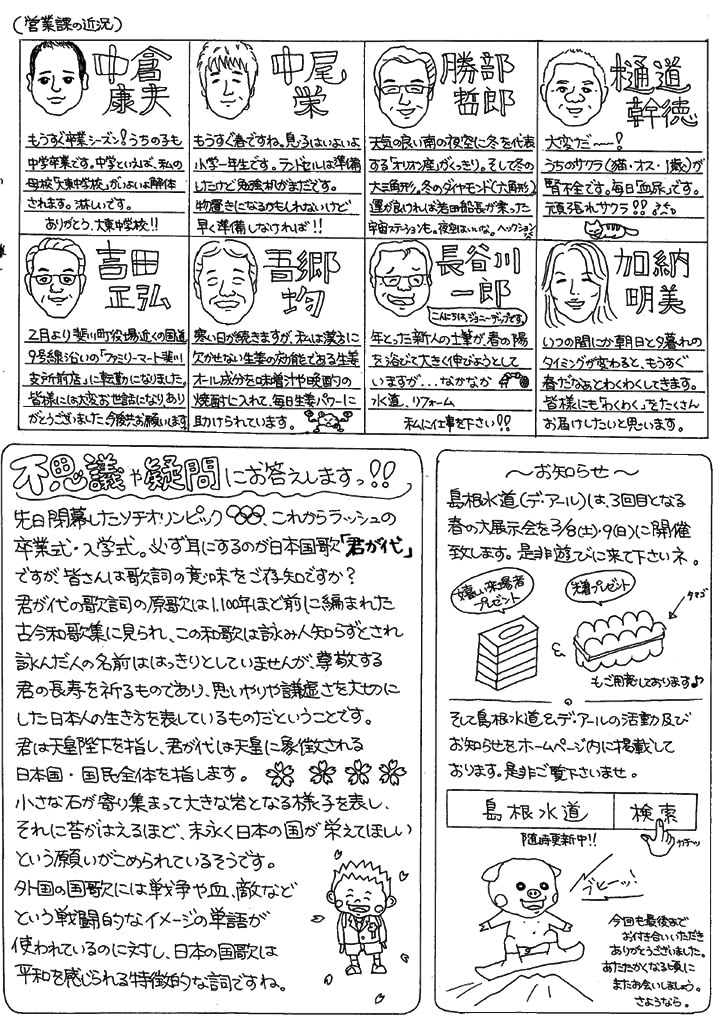 (営業課の近況)
中倉
康夫
もうすぐ卒業シーズン!うちの子も
中学卒業です。中学といえば、私の
母校「大東中学校」がいよいよ解体
されます。淋しいです。
ありがとう、大東中学校!!
中尾
栄
もうすぐ春ですね。息子はいよいよ
小学一年生です。ランドセルは準備
したけど勉強机がまだです。
物置きになるかもしれないけど
早く準備しなければ!!
勝部
哲郎
天気の良い南の夜空に冬を代表
する「オリオン座」がくっきり。そして冬の
大三角形。冬のダイヤモンド(六角形)
運が良ければ若田船長が乗った
宇宙ステーションも。夜空はいいな。ヘックション
樋道
幹徳
大変だ〜!
うちのサクラ(猫・オス・1歳)が
腎不全です。毎日「血尿」です。
頑張れサクラ!!
吉田
正弘
2月より斐川町役場近くの国道
9号線沿いの「ファミリーマート斐川
支所前店」に転勤になりました。
皆様には大変お世話になりあり
がとうございました。今後共お願いします
吾郷
均
寒い日が続きますが、私は漢方に
欠かせない生薬の効能である生姜
オール成分を味噌汁や晩酌の
焼酎に入れて、毎日生姜パワーに
助けられています。
長谷川
一郎
こんにちは、ジョニーデップです。
年とった新人の土筆が、春の陽
を浴びて大きく伸びようとして
いますが...なかなか
水道、リフォーム
私に仕事を下さい!!
加納
明美
いつの間にか朝日と夕暮れの
タイミングが変わると、もうすぐ
春だなぁとわくわくしてきます。
皆様にも「わくわく」をたくさん
お届けしたいと思います。
不思議や疑問にお答えしますっ!!
先日閉幕したソチオリンピック、これからラッシュの
卒業式・入学式。必ず耳にするのが日本国歌「君が代」
ですが皆さんは歌詞の意味をご存知ですか?
君が代の歌詞の原歌は1,100年ほど前に編まれた
古今和歌集に見られ、この和歌は詠み人知らずとされ
詠んだ人の名前ははっきりとしていませんが、尊敬する
君の長寿を祈るものであり、思いやりや謙虚さを大切に
した日本人の生き方を表しているものだということです。
君は天皇陛下を指し、君が代は天皇に象徴される
日本国・国民全体を指します。
小さな石が寄り集まって大きな岩となる様子を表し、
それに苔がはえるほど、末永く日本の国が栄えてほしい
という願いがこめられているそうです。
外国の国歌には戦争や血、敵など
という戦闘的なイメージの単語が
使われているのに対し、日本の国歌は
平和を感じられる特徴的な詞ですね。
〜お知らせ〜
島根水道(デ・アール)は、3回目となる
春の大展示会を3/8(土)・9(日)に開催
致します。是非遊びに来て下さいネ。
嬉しい来場者
プレゼント
先着プレゼント
タマゴ
&
もご用意しております♪
そして島根水道&デ・アールの活動及び
お知らせをホームページ内に掲載して
おります。是非ご覧下さいませ。
島根水道 検索
随時更新中!!
カチッ
ブヒーッ!
今回も最後まで
お付き合いいただき
ありがとうございました。
あたたかくなる頃に
またお会いしましょう。
さようなら。